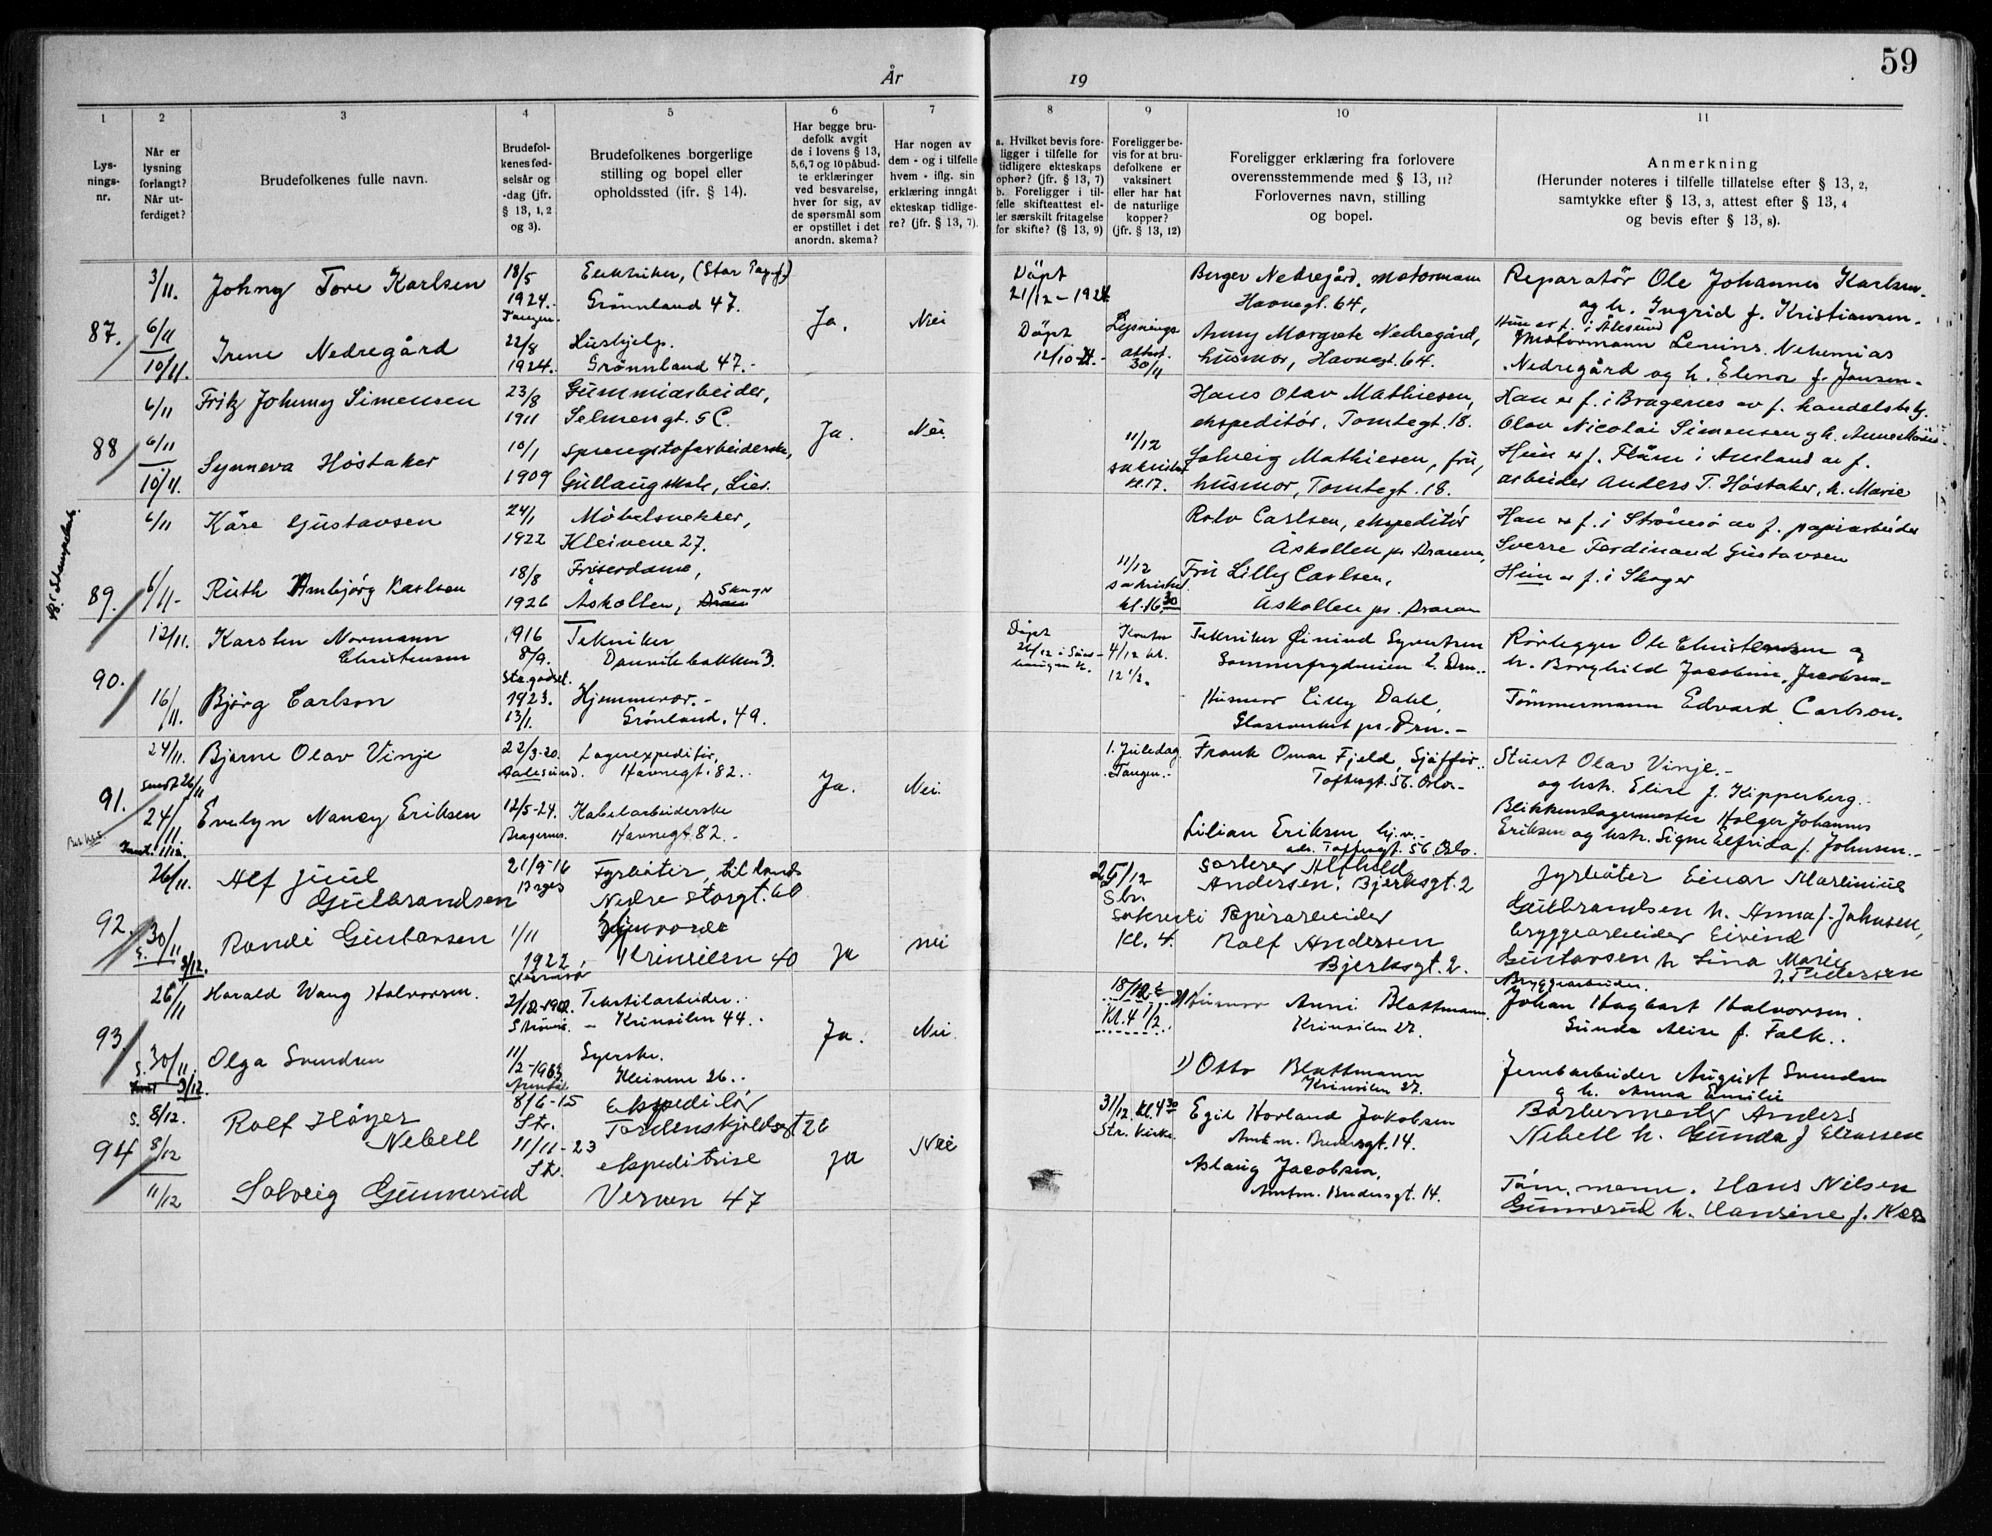 59
År 19
1 2 3 4 5 6 7 8 9 10 11
Lys-
nings-
nr.
Når er
lysning
forlangt?
Når ut-
ferdiget?
Brudefolkenes fulle navn.
Brudefol-
kenes fød-
selsår og
-dag (jfr.
§ 13, 1, 2
og 3).
Brudefolkenes borgerlige
stilling og bopel eller
opholdssted (jfr. § 14).
Har begge bru-
defolk avgit
de i lovens § 13,
5,6,7 og 10 påbud-
te erklæringer
ved besvarelse,
hver for sig, av
de spørsmål som
er opstillet i det
anordn. skema?
Har nogen av
dem - og i tilfelle
hvem - iflg. sin
erklæring inngått
ekteskap tidlige-
re? (jfr. § 13, 7).
a. Hvilket bevis fore-
ligger i tilfelle for
tidligere ekteskaps
ophør? (jfr. § 13, 7)
b. Foreligger i til-
felle skifteattest el-
ler særskilt fritagelse
for skifte? (§ 13, 9)
Foreligger be-
vis for at bru-
defolkene er
vaksinert
eller har hat
de naturlige
kopper?
(jfr. § 13, 12)
Foreligger erklæring fra forlovere
overensstemmende med § 13, 11?
Forlovernes navn, stilling
og bopel.
Anmerkning
(Herunder noteres i tilfelle tillatelse efter § 13, 2,
samtykke efter § 13, 3, attest efter § 13, 4
og bevis efter § 13, 8).
87.
3/11.
6/11
10/11.
Johny Tore Karlsen
18/5
1924.
Tangen
Grønnland 47.
Irene Nedregård
22/8
1924.
Hushjelp.
Grønnland 47.
Ja.
Nei
Döpt
21/12-1924
Döpt
12/10
Lysnings
30/11
Berger Nedregård, motormann
Havnegt. 64,
Anny Margrete Nedregård,
husmor, Havnegt. 64.
Reparatør Ole Johannes Karlsen
og h. Ingrid f. Kristiansen.
Hun er f. i Ålesund
Motormann Nehemias
Nedregård og h. Elenor f. Jensen.
88
6/11
6/11
10/11.
Fritz Johnny Simensen
23/8
1911
Gummiarbeider,
Selmersgt. 5 C.
Synneva Höstaker
10/1
1909
Sprengstofarbeiderske,
Gullaug skole, Lier.
Ja.
Nei.
11/12
sakristi
kl. 17.
Hans Olav Mathiesen,
ekspeditör, Tomtegt. 18.
Solveig Mathiesen, fru,
husmor, Tomtegt. 18.
Han er f. i Bragernes av f. handelsbetj.
Olav Nicolai Simensen og h. Anne
Hun er f. Flåm i Aurland av f.
arbeider Anders T. Höstaker, h. Marie
89.
6/11
6/11-
Kåre Gustavsen
24/1
1922
Möbelsnekker,
Kleivene 27.
Ruth Karlsen
18/8
1926
Friserdame,
Åskollen, Skoger
11/12
sakristi
kl. 16.30
Rolv Carlsen, ekspeditör
Åskollen pr. Drammen
Fru Lilly Carlsen,
Åskollen pr. Dramm
Han er f. i Strömsö av f. papirarbeider
Sverre Ferdinand Gustavsen
Hun er f. i Skoger
90.
12/11.
16/11.
Karsten Normann
Christensen
1916
8/9.
Tekniker
Danvikbakken 3.
Bjørg Carlson
1923.
13/1.
Hjemmevær.-
Grönland. 49.
Döpt
Kontor
4/12 kl.
12 1/2.
Tekniker Øivind Syvertsen
Husmor Lilly Dahl,
Glassverket pr. Drm.-
Rørlegger Ole Christensen og
h. Borghild Jacobine, Jacobsen
Tømmermann Edvard Carlson.
91.
24/11.
24/11
Bjarne Olav Vinje
22/3-20.
Aalesund.
Lagerexpeditör,
Havnegt. 82.
Evelyn Nancy Eriksen
12/5-24.
Bragernes.
Kabelarbeiderske
Havnegt 82.
Ja.
Nei.
1. Juledag
Tangen.
Frank Omar Fjeld, Sjåffør.
Toftesgt. 56. Oslo.-
Lilian Eriksen
Toftesgt. 56. Oslo.
Stuert Olav Vinje.-
og hst. Elise f. Kipperberg.
Blikkenslagermester Holger Johannes
Eriksen og hst. Signe Elfrida f. Johnsen.-
92.
26/11.
30/11
3/12.
Alf Juul
Gulbrandsen
21/9-16
Fyrbøter, til lands
Nedre Storgt. 60
Randi Gustavsen
1/11
1922,
Krinsilen 40
Ja
nei
25/12
Sakristi
Kl. 4.
Sorterer Alfhild
Andersen, Bjerksgt. 2
Papirarbeider
Rolf Andersen
Bjerksgt. 2.
Fyrbøter Einar Martinius
Gulbrandsen h. Anna f. Johnsen,
bryggearbeider Eivind
Gustavsen h Lina Marie
f. Pedersen
93
26/11
30/11
3/12.
Harald Wang Halvorsen.
Tekstilarbeider.
Krinsilen 44.
Olga Svendsen
Syerske.
Kleivene 26.
Ja.
Nei.
18/12
Kl. 4 1/2.
Husmor Anni Blattmann
Krinsilen 27.
1) Otto Blattmann
Krinsilen 27.
Bryggearbeider.
Johan Hagbart Halvorsen.
Gunda Alise f. Falk.
Jernbarbeider August Svendsen
g h. Anna Emilie
94
8/12.
8/12
11/12
Rolf Höyer
Nebell
8/6-15
Str.
ekspeditör
Tordenskjoldsgt 26
Solveig Gunnerud
11/11-23
Str.
ekspeditrise
Verven 47
ja
Nei
31/12. Kl. 4 30
Str. Kirke.
Egil Horland Jakobsen
Amtm. Bredersgt. 14.
Aslaug Jacobsen,
Amtm. Bredersgt. 14.
Barbermester Anders
Nebell h. Gunda f Eliassen
Töm.mann. Hans Nilsen
Gunnerud h. Hansine f. Næss